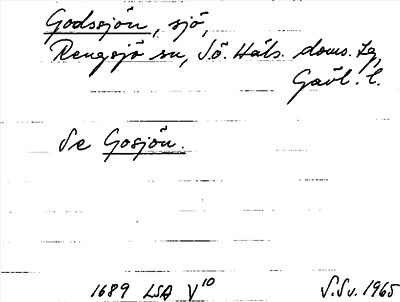 Godssjön, sjö,
Rengsjö sn, Sö. Häls. doms. lg,
Gävl. l.
Se Gosjön.
1689 LSA V¹⁰ S.Sv. 1965